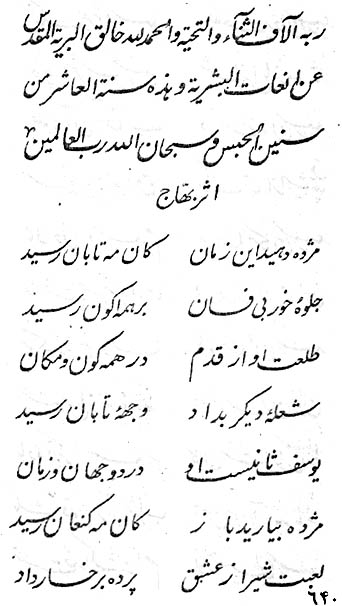 ربه آلاف الثناء والتحية والحمد لله خالق البرية المقدس
عن انعات البشرية وهذه سنة العاشر من
سنين الحبس وسبحان الله رب العالمين
اثر بهاج
مژده دهید این زمان کان مه تابان رسید
جلوهٔ خور بی فسان بر همه اکون رسید
طلعت او از قدم در همه کون و مکان
شعلهٔ دیگر بداد وجههٔ تابان رسید
یوسف ثانیست او در دو جهان و زمان
مژده بیارید باز کان مه کنعان رسید
لعبت شیراز عشق پرده بر خسار داد
۶۴۰